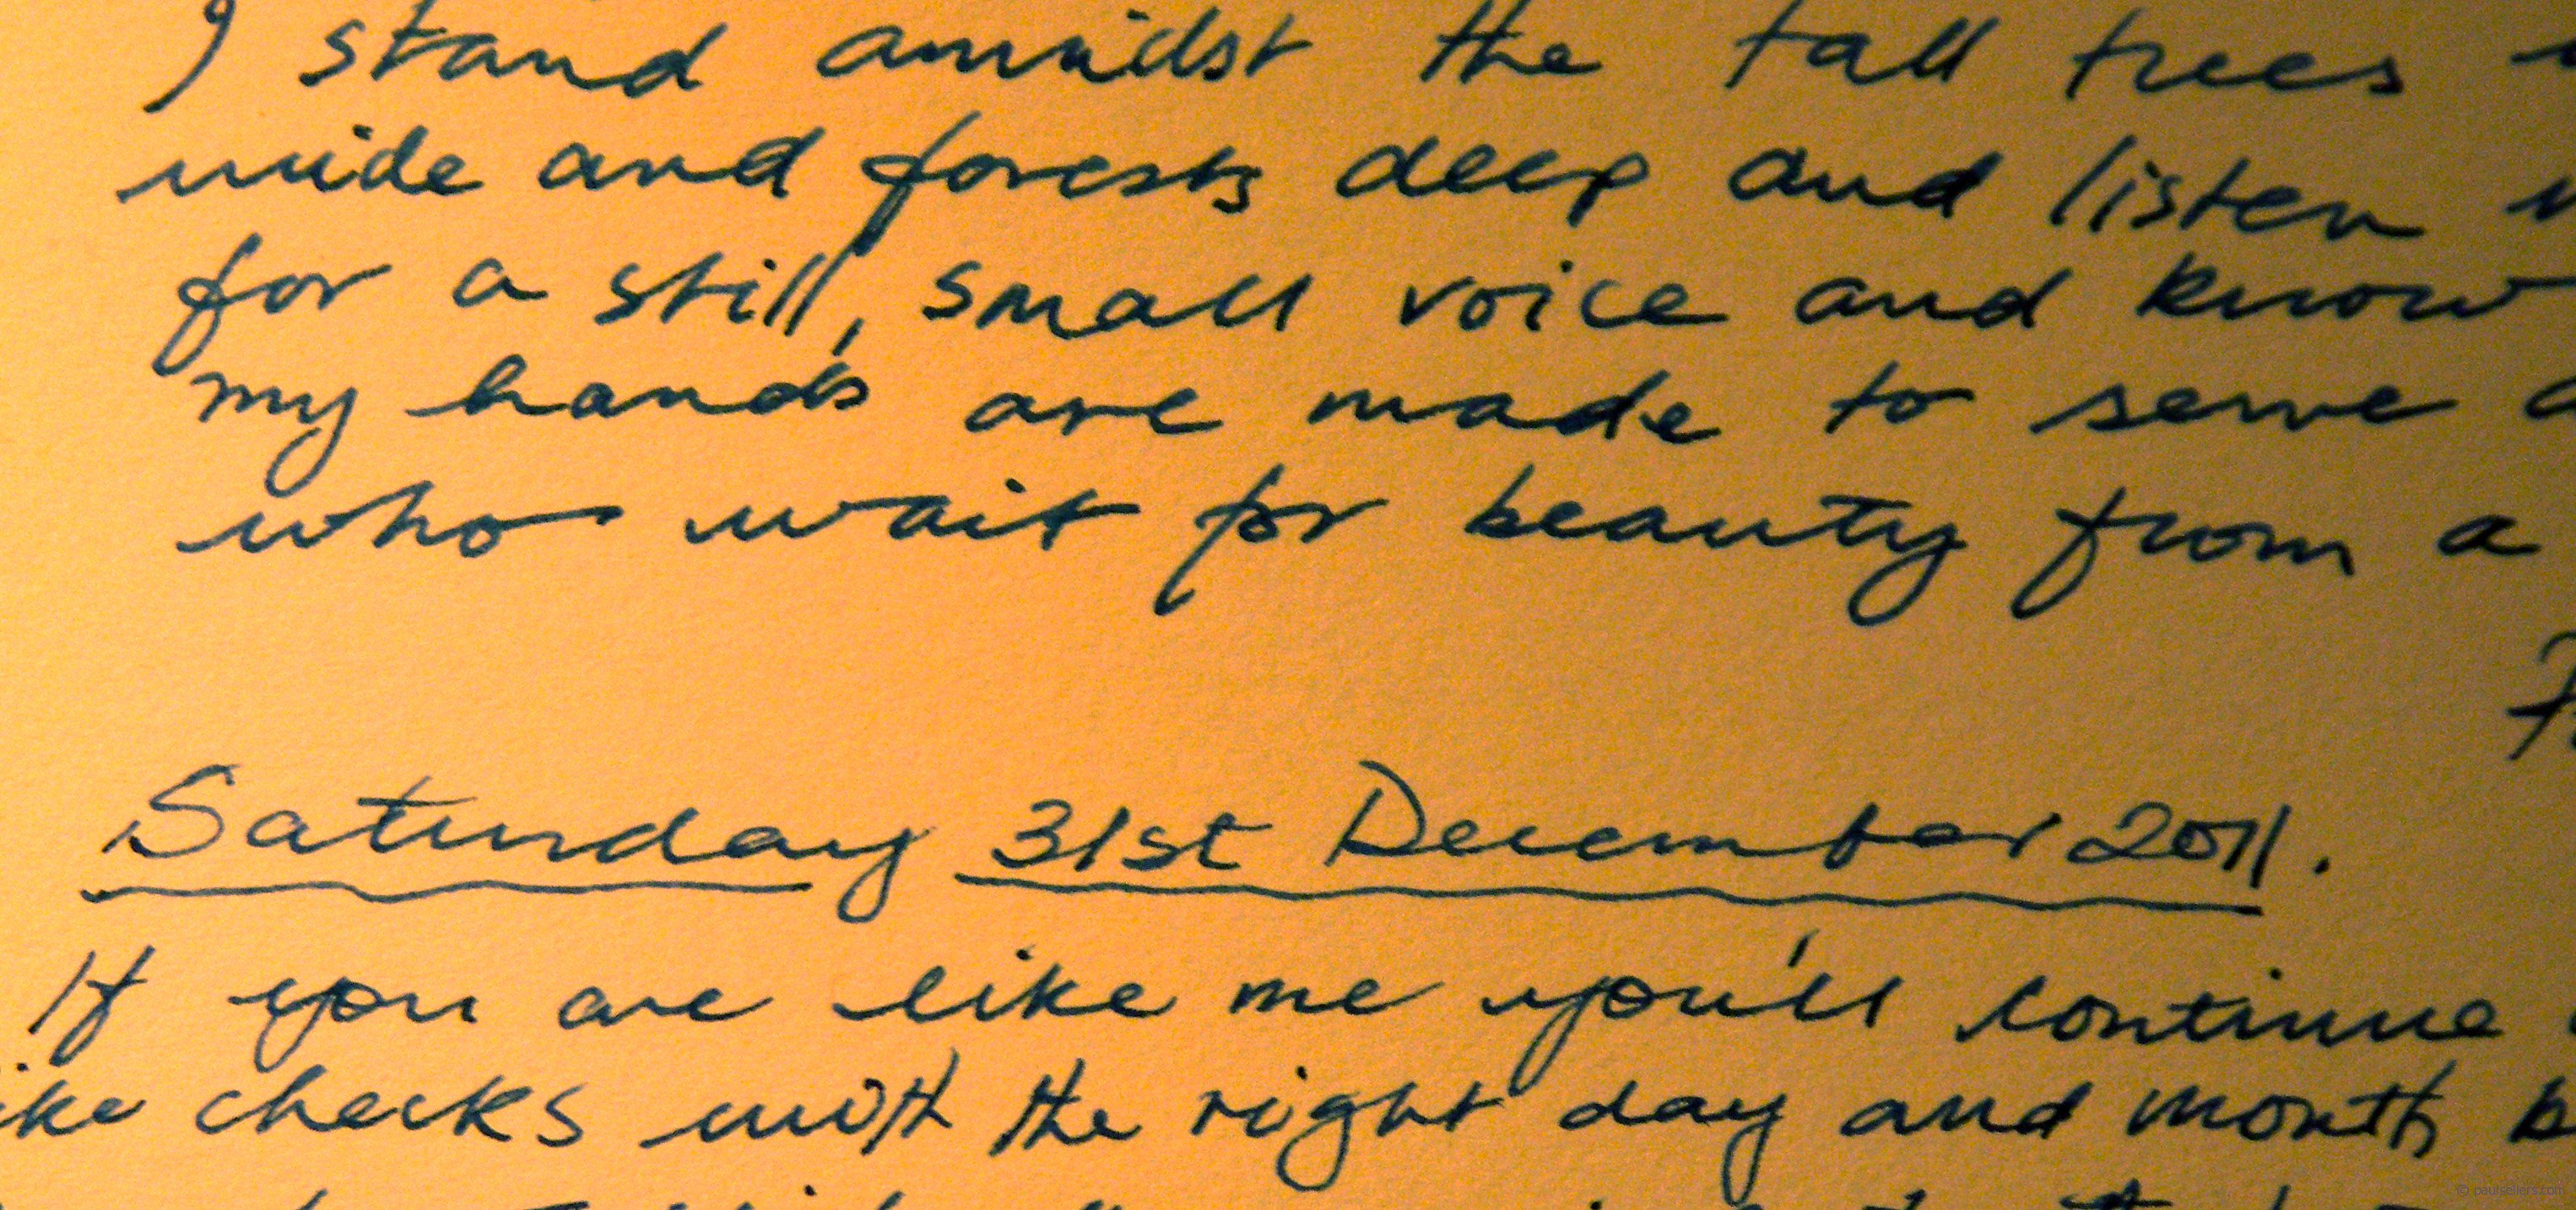 I stand amidst the tall trees
wide and forests deep and listen
for a still, small voice and know
my hands are made to serve
who wait for beauty from a
Saturday 31st December 2011.
If you are like me you'll continue
checks with the right day and month
© paulsellers.com